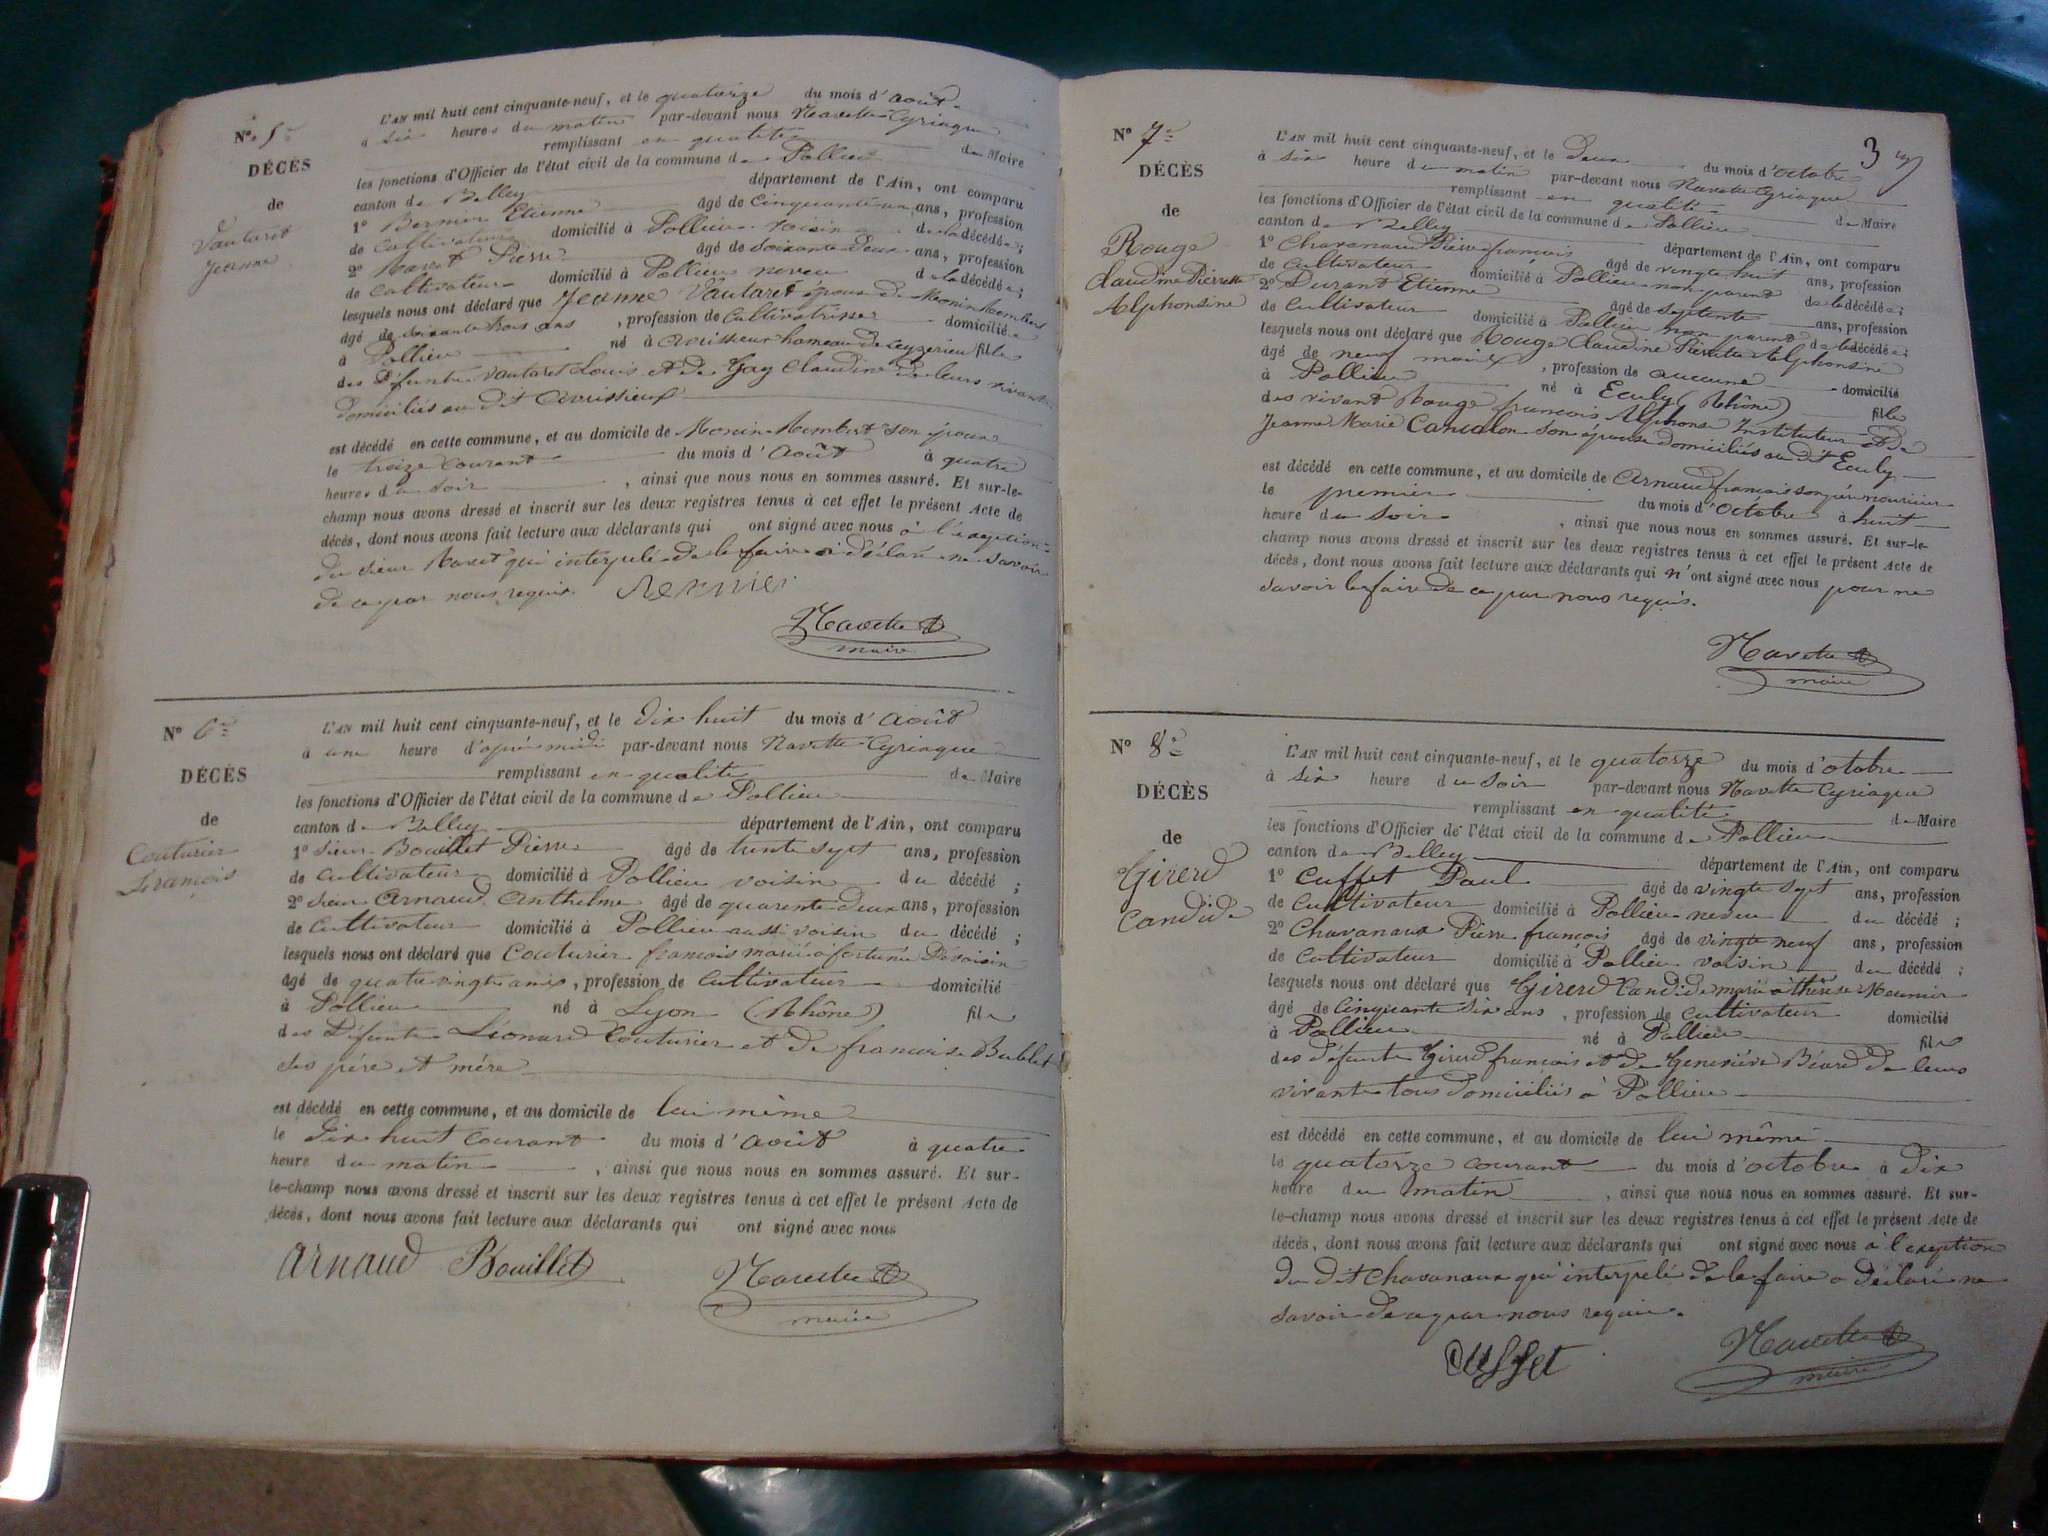 N° 5e
DÉCÈS
de
Vautaret
Jeanne
L'AN mil huit cent cinquante-neuf, et le quatorze du mois d'août
à six heures du matin par-devant nous Navette Cyriaque
remplissant en qualité de Maire
les fonctions d'Officier de l'état civil de la commune de Pollieu
canton de Belley département de l'Ain, ont comparu
1° Bernier Etienne âgé de cinquante un ans, profession
de cultivateur domicilié à Pollieu voisin de la décédée;
2° Pierre âgé de soixante deux ans, profession
de cultivateur domicilié à Pollieu neveu de la décédée;
lesquels nous ont déclaré que Jeanne Vautaret épouse de Monin Humbert
âgé de soixante trois ans, profession de cultivatrice domiciliée
à Pollieu né à avrissieux hameau de Ceyzerieu fille
des défunts Vautaret Louis et de Gay Claudine de leurs vivants
domiciliés au dit avrissieux
est décédé en cette commune, et au domicile de Monin Humbert son époux
le treize courant du mois d'août à quatre
heures du soir, ainsi que nous nous en sommes assuré. Et sur-le-
champ nous avons dressé et inscrit sur les deux registres tenus à cet effet le présent Acte de
décès, dont nous avons fait lecture aux déclarants qui ont signé avec nous à l'exeption
du sieur qui interpelé de le faire a déclaré ne savoir
de ce par nous requis. Bernier
Navette
maire
N° 6e
DÉCÈS
de
Couturier
François
L'AN mil huit cent cinquante-neuf, et le dix huit du mois d'août
à une heure d'après midi par-devant nous Navette Cyriaque
remplissant en qualité de Maire
les fonctions d'Officier de l'état civil de la commune de Pollieu
canton de Belley département de l'Ain, ont comparu
1° sieur Bouillet Pierre âgé de trente sept ans, profession
de cultivateur domicilié à Pollieu voisin du décédé;
2° sieur Arnaud Anthelme âgé de quarente deux ans, profession
de cultivateur domicilié à Pollieu aussi voisin du décédé;
lesquels nous ont déclaré que Couturier françois marié à fortunée
âgé de quatre vingts ans, profession de cultivateur domicilié
à Pollieu né à Lyon (Rhône) fils
des défunts Léonard Couturier et de francoise Bublet
ses père et mère
est décédé en cette commune, et au domicile de lui même
le dix huit courant du mois d'août à quatre
heure du matin, ainsi que nous nous en sommes assuré. Et sur-
le-champ nous avons dressé et inscrit sur les deux registres tenus à cet effet le présent Acte de
décès, dont nous avons fait lecture aux déclarants qui ont signé avec nous
Arnaud Bouillet
Navette
maire
3
N° 7e
DÉCÈS
de
Rouge
Claudine Pierrette
Alphonsine
L'AN mil huit cent cinquante-neuf, et le deux du mois d'octobre
à six heure du matin par-devant nous Navette Cyriaque
remplissant en qualité de Maire
les fonctions d'Officier de l'état civil de la commune de Pollieu
canton de Belley département de l'Ain, ont comparu
1° Chavanaux Pierre françois âgé de vingt huit ans, profession
de cultivateur domicilié à Pollieu non parent de la décédée;
2° Durant Etienne âgé de septente ans, profession
de cultivateur domicilié à Pollieu non parent de la décédée;
lesquels nous ont déclaré que Rouge Claudine Pierrette Alphonsine
âgé de neuf moix, profession de aucune domicilié
à Pollieu né à Eculy (Rhône) fille
des vivant Rouge françois Alphonse Instituteur et de
Jeanne Marie son épouse domiciliés au dit Eculy
est décédé en cette commune, et au domicile de Arnaud françois son père nourricier
le premier du mois d'octobre à huit
heure du soir, ainsi que nous nous en sommes assuré. Et sur-le-
champ nous avons dressé et inscrit sur les deux registres tenus à cet effet le présent Acte de
décès, dont nous avons fait lecture aux déclarants qui n'ont signé avec nous pour ne
savoir le faire de ce par nous requis.
Navette
maire
N° 8e
DÉCÈS
de
Girerd
Candide
L'AN mil huit cent cinquante-neuf, et le quatorze du mois d'otobre
à six heure du soir par-devant nous Navette Cyriaque
remplissant en qualité de Maire
les fonctions d'Officier de l'état civil de la commune de Pollieu
canton de Belley département de l'Ain, ont comparu
1° Cuffet Paul âgé de vingt sept ans, profession
de cultivateur domicilié à Pollieu neveu du décédé;
2° Chavanaux Pierre françois âgé de vingt neuf ans, profession
de cultivateur domicilié à Pollieu voisin du décédé;
lesquels nous ont déclaré que Girerd Candide marié à thérèse Meunier
âgé de cinquante dix ans, profession de cultivateur domicilié
à Pollieu né à Pollieu fils
des défunts Girerd françois et de Geneviève Béard de leurs
vivants tous domiciliés à Pollieu
est décédé en cette commune, et au domicile de lui même
le quatorze courant du mois d'octobre à dix
heure du matin, ainsi que nous nous en sommes assuré. Et sur-
le-champ nous avons dressé et inscrit sur les deux registres tenus à cet effet le présent Acte de
décès, dont nous avons fait lecture aux déclarants qui ont signé avec nous à l'exeption
du dit Chavanaux qui interpelé de le faire a déclaré ne
savoir de ce par nous requis.
Cuffet
Navette
maire